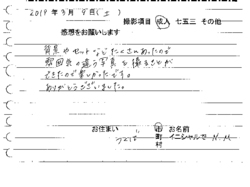 2019年3月9日(土) 撮影項目 成人 七五三 その他
感想をお願いします
背景やセットなどたくさんあったので
雰囲気の違う写真を撮ることが
できたので楽しかったです。
ありがとうございました。
お住まい お名前
つくば 市 イニシャルで N.M
町
村